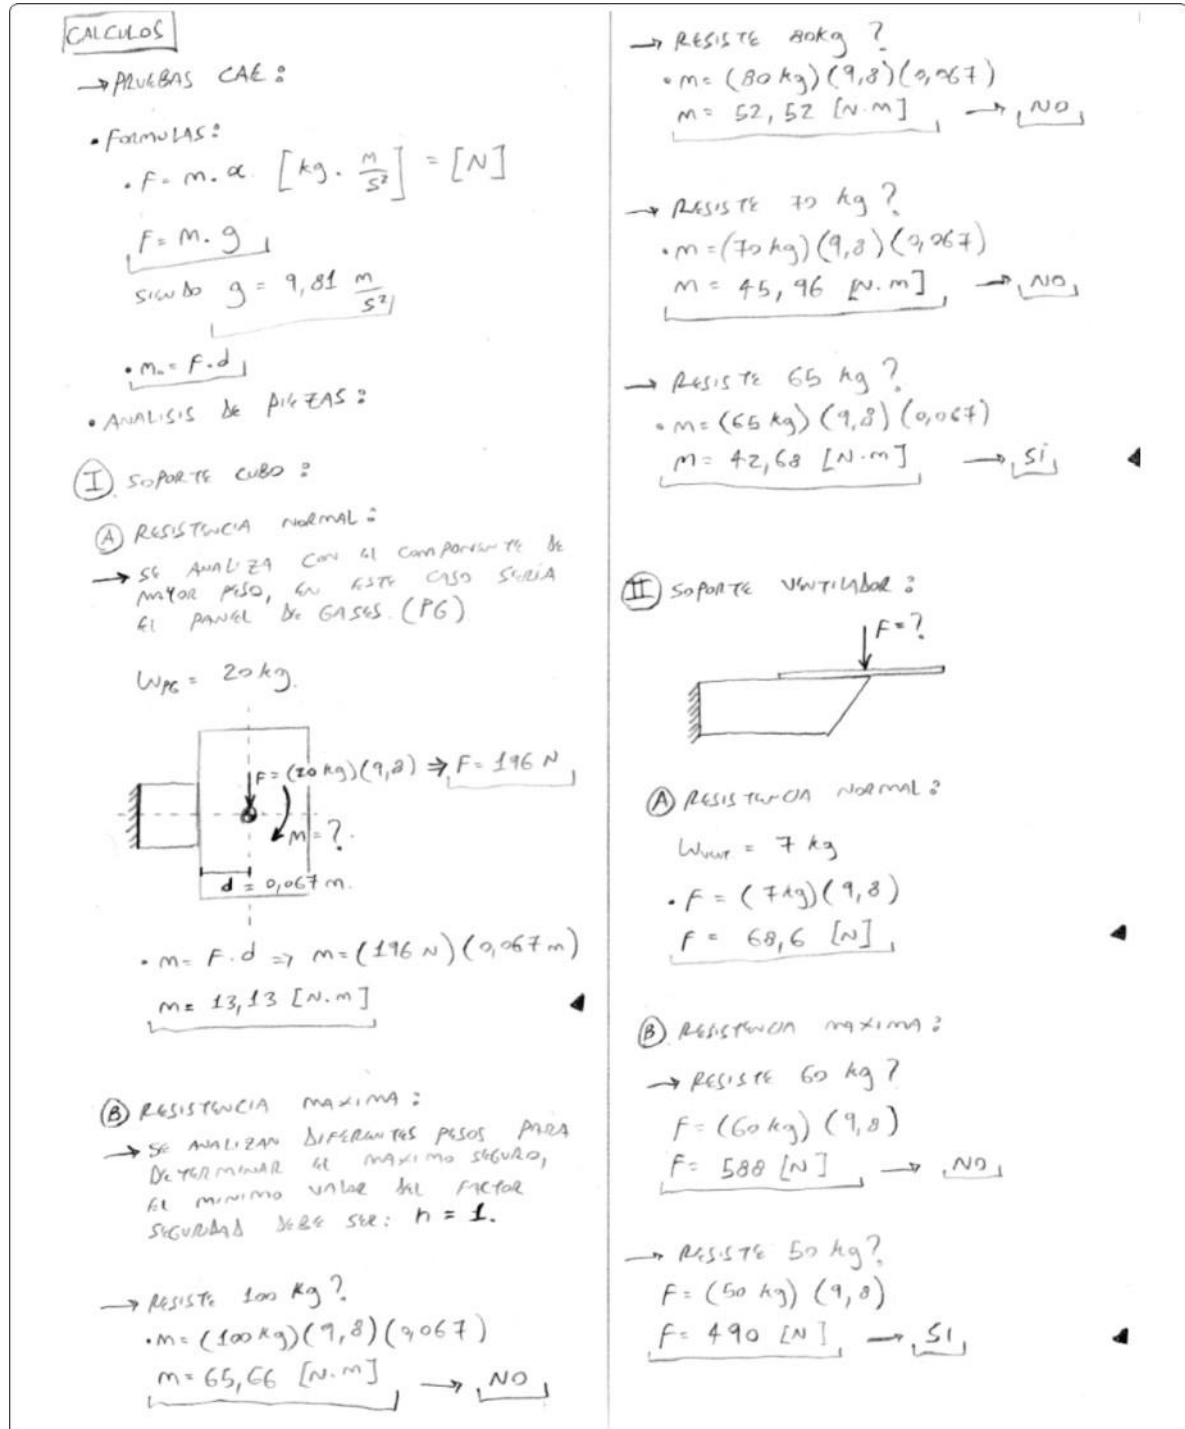 CALCULOS
→ PRUEBAS CAE:
• FORMULAS:
• F = m. a. [kg. m/s²] = [N]
F = m. g
SIENDO g = 9,81 m/s²
• m. = F.d
• ANALISIS DE PIEZAS:
I SOPORTE CUBO:
A RESISTENCIA NORMAL:
→ SE ANALIZA CON EL COMPONENTE DE
MAYOR PESO, EN ESTE CASO SERIA
EL PANEL DE GASES. (PG)
WPG = 20 kg.
F = (20 kg)(9,8) ⇒ F = 196 N
M = ?.
d = 0,067 m.
• m = F.d => m = (196 N)(0,067 m)
m = 13,13 [N.m]
B RESISTENCIA MAXIMA:
→ SE ANALIZAN DIFERENTES PESOS PARA
DETERMINAR EL MAXIMO SEGURO,
EL MINIMO VALOR DEL FACTOR
SEGURIDAD DEBE SER: n = 1.
→ RESISTE 100 kg?
• m = (100 kg)(9,8)(0,067)
m = 65,66 [N.m] → NO
→ RESISTE 80kg?
• m = (80 kg)(9,8)(0,067)
m = 52,52 [N.m] → NO
→ RESISTE 70 kg?
• m = (70 kg)(9,8)(0,067)
m = 45,96 [N.m] → NO
→ RESISTE 65 kg?
• m = (65 kg)(9,8)(0,067)
m = 42,68 [N.m] → SI
II SOPORTE VENTILADOR:
F = ?
A RESISTENCIA NORMAL:
WVENT. = 7 kg
• F = (7kg)(9,8)
F = 68,6 [N]
B RESISTENCIA MAXIMA:
→ RESISTE 60 kg?
F = (60 kg)(9,8)
F = 588 [N] → NO
→ RESISTE 50 kg?
F = (50 kg)(9,8)
F = 490 [N] → SI